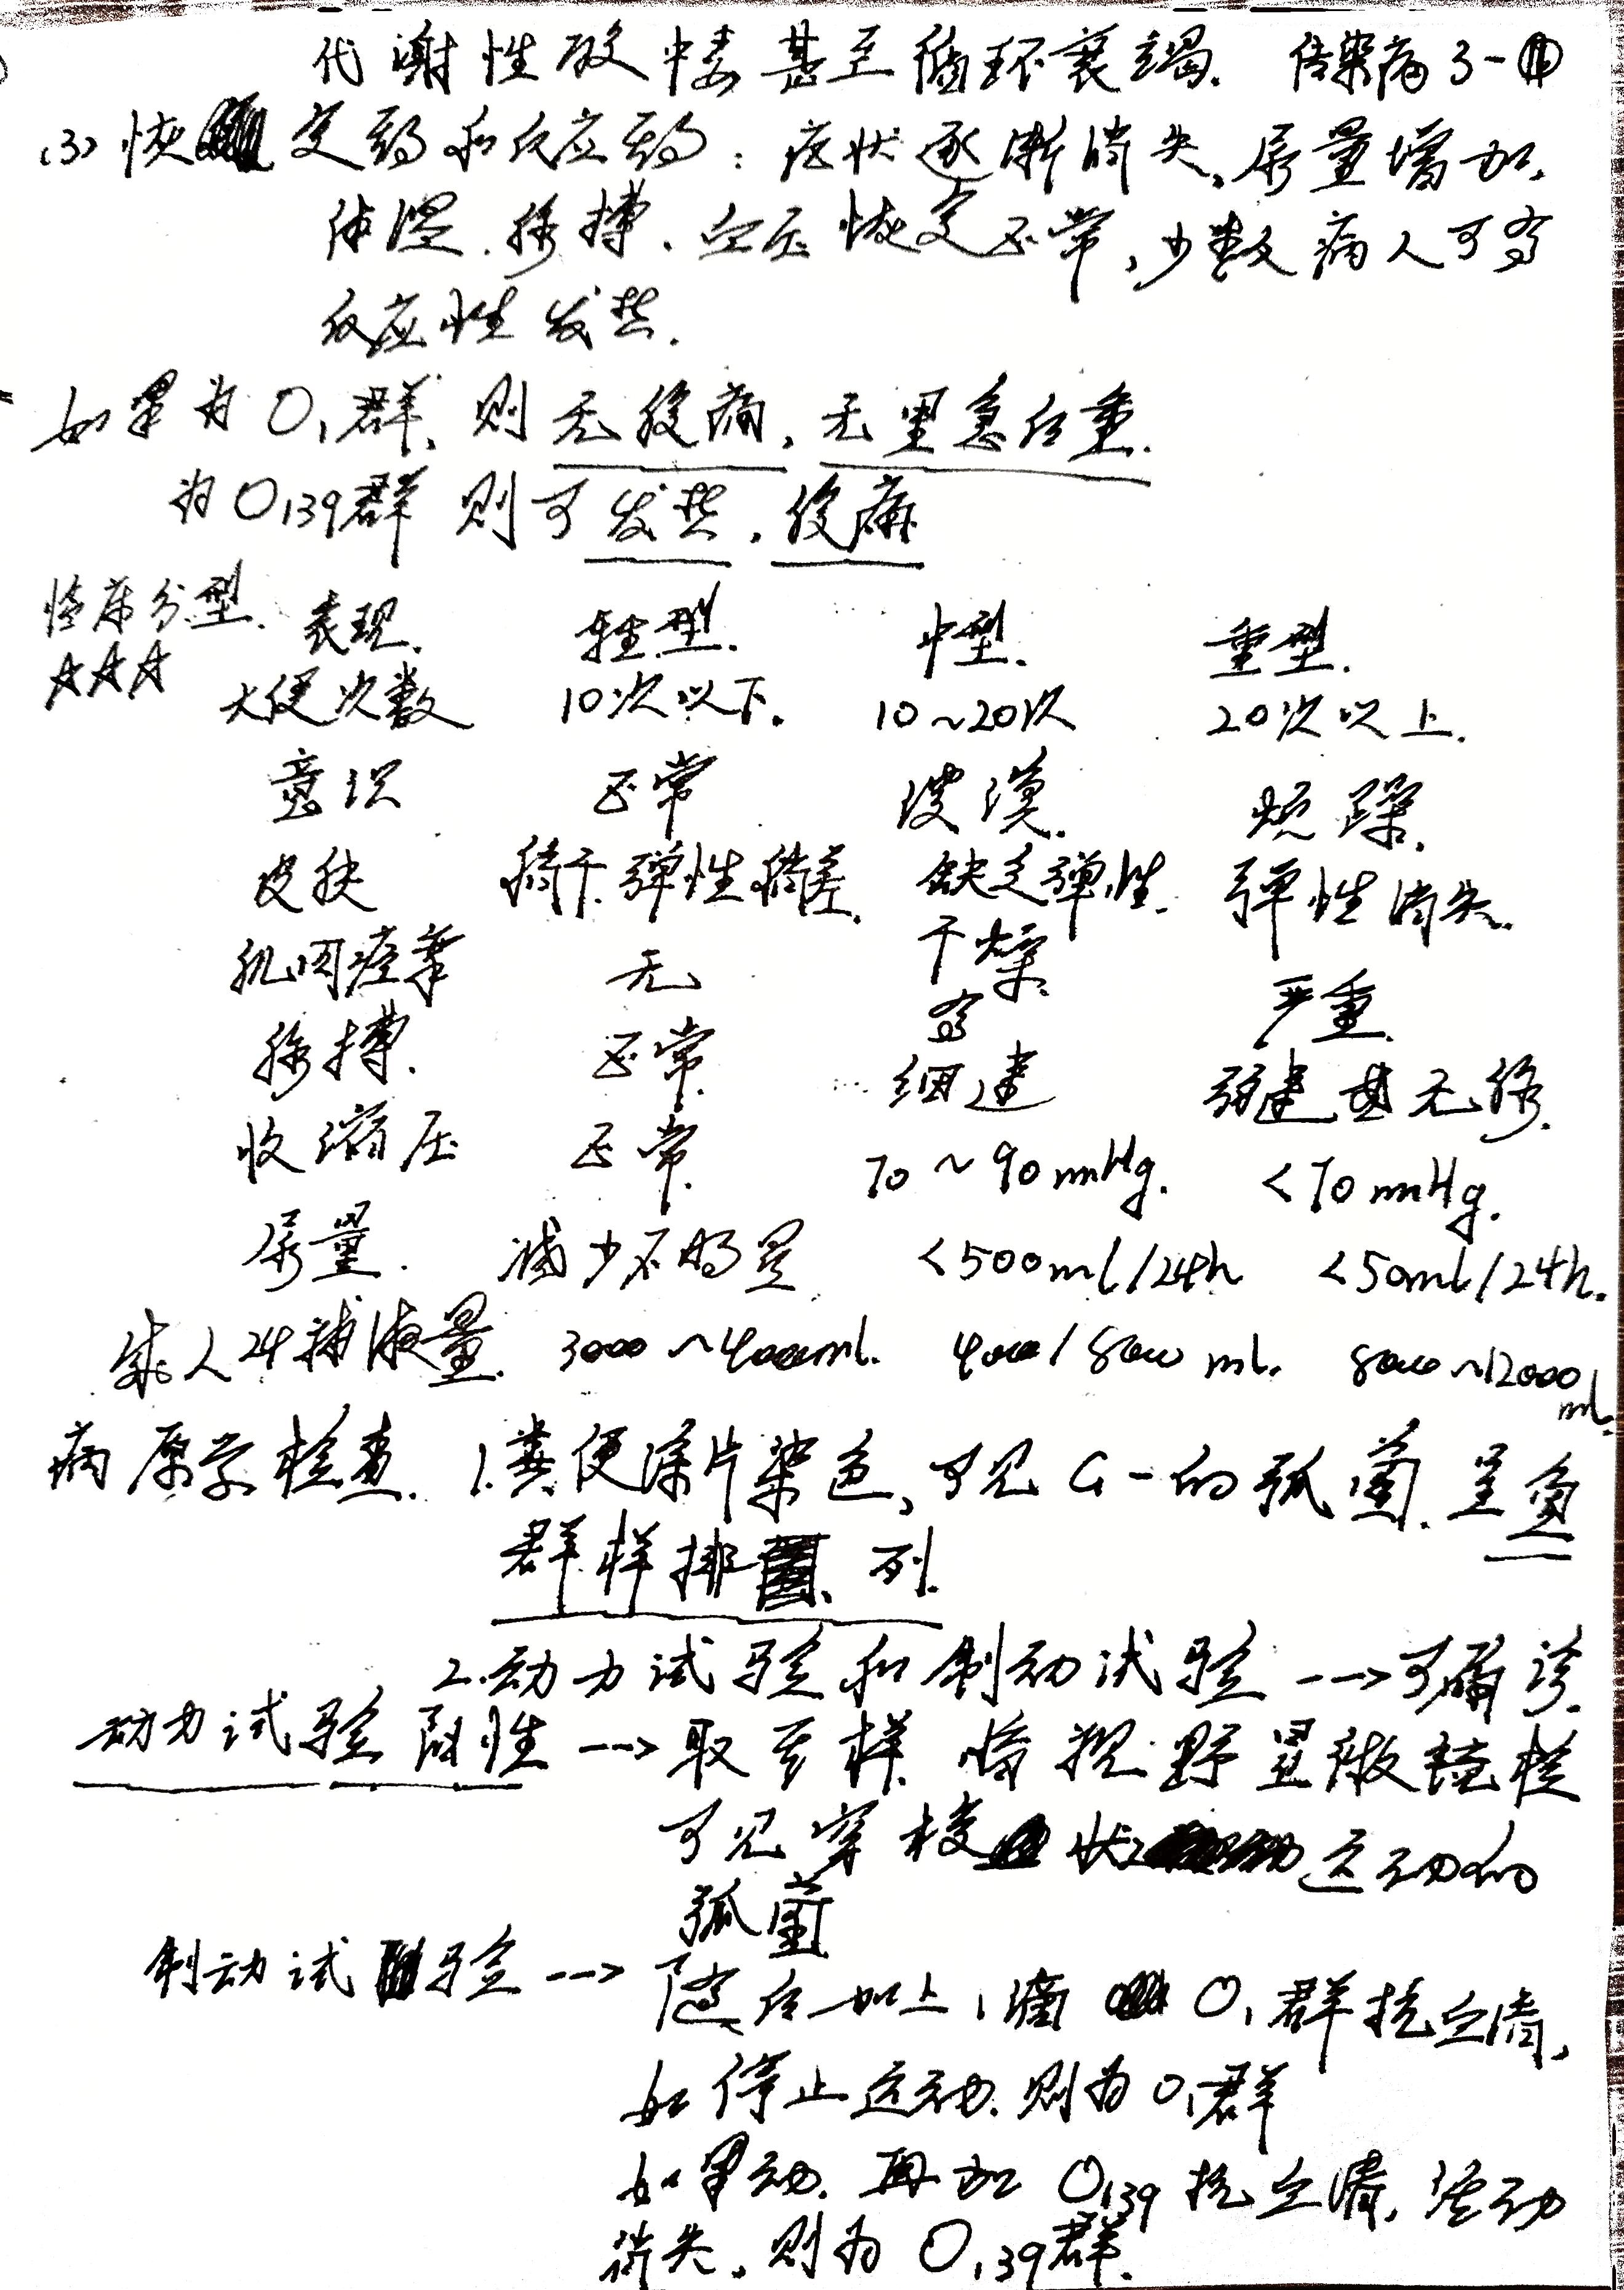 代谢性酸中毒甚至循环衰竭. 传染病3-⑪
(3) 恢复期和反应期: 症状逐渐消失, 尿量增加,
体温、脉搏、血压恢复正常, 少数病人可有
反应性发热.
如果为O1群, 则无腹痛, 无里急后重.
为O139群 则可发热, 腹痛
临床分型. 表现. 轻型. 中型. 重型.
☆☆☆ 大便次数 10次以下. 10~20次 20次以上.
意识 正常 淡漠. 烦躁.
皮肤 稍干. 弹性稍差. 缺乏弹性. 弹性消失.
干燥.
肌肉痉挛 无 有 严重.
脉搏. 正常. 细速 弱速甚无脉.
收缩压 正常. 70~90mmHg. <70mmHg.
尿量. 减少不明显 <500ml/24h <50ml/24h.
成人24补液量. 3000~4000ml. 4000/8000ml. 8000~12000ml.
病原学检查. 1.粪便涂片染色, 可见G-的弧菌. 呈鱼
群样排列.
2.动力试验和制动试验 --→可确诊.
动力试验阳性 --→取粪样 暗视野显微镜检
可见穿梭状运动的
弧菌
制动试验 --→ 随后加上1滴 O1群抗血清,
如停止运动. 则为O1群
如果动. 再加O139抗血清, 活动
消失, 则为O139群.